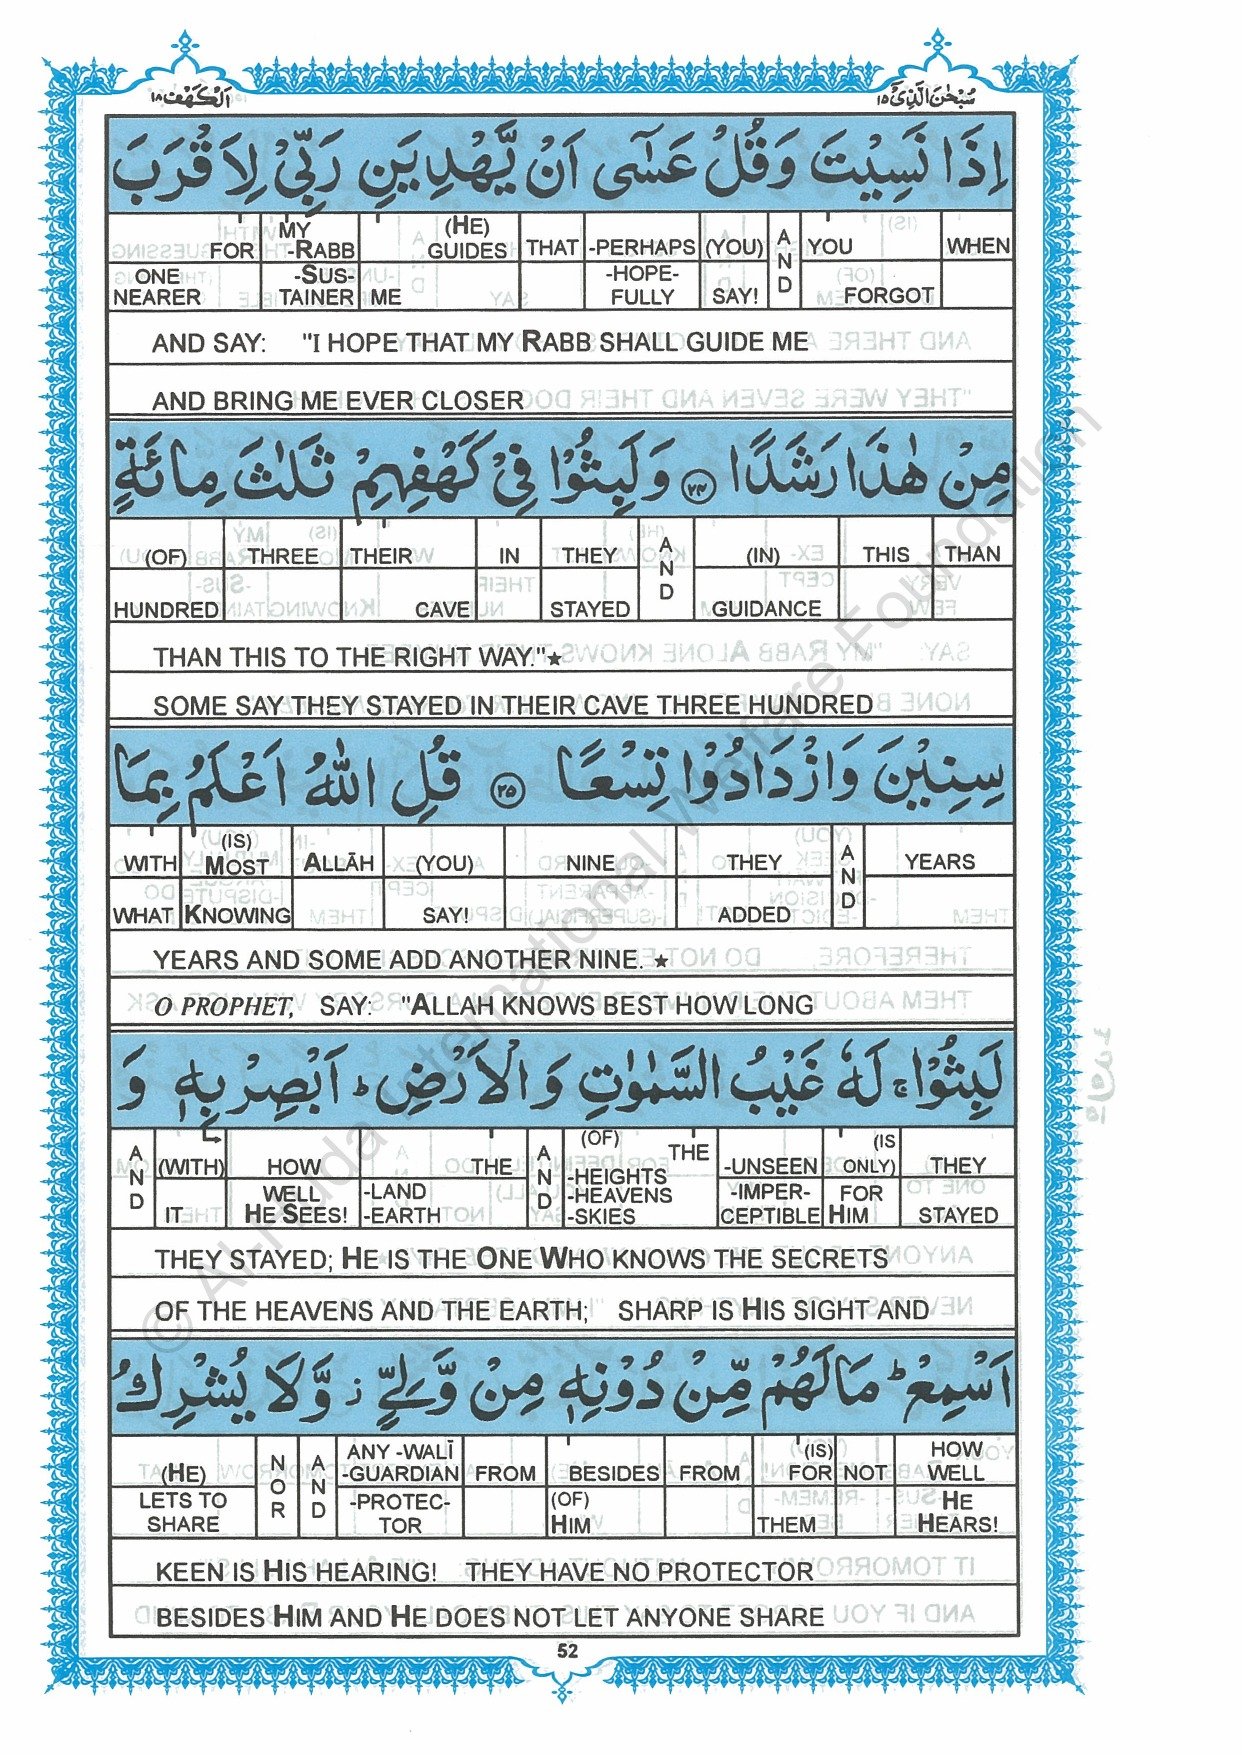 اَلْكَهْف ١٨ سُبْحٰنَ الَّذِيْ ١٥
اِذَا نَسِيْتَ وَقُلْ عَسٰٓى اَنْ يَّهْدِيَنِ رَبِّيْ لِاَقْرَبَ
FOR MY -RABB (HE) GUIDES THAT -PERHAPS (YOU) AND YOU WHEN
ONE NEARER -SUS- TAINER ME -HOPE- FULLY SAY! FORGOT
AND SAY: "I HOPE THAT MY RABB SHALL GUIDE ME
AND BRING ME EVER CLOSER
مِنْ هٰذَا رَشَدًا ٢٤ وَلَبِثُوْا فِيْ كَهْفِهِمْ ثَلٰثَ مِائَةٍ
(OF) THREE THEIR IN THEY AND (IN) THIS THAN
HUNDRED CAVE STAYED GUIDANCE
THAN THIS TO THE RIGHT WAY."★
SOME SAY THEY STAYED IN THEIR CAVE THREE HUNDRED
سِنِيْنَ وَازْدَادُوْا تِسْعًا ٢٥ قُلِ اللّٰهُ اَعْلَمُ بِمَا
WITH (IS) MOST ALLĀH (YOU) NINE THEY AND YEARS
WHAT KNOWING SAY! ADDED
YEARS AND SOME ADD ANOTHER NINE. ★
O PROPHET, SAY: "ALLAH KNOWS BEST HOW LONG
لَبِثُوْا ۚ لَهٗ غَيْبُ السَّمٰوٰتِ وَالْاَرْضِ ؕ اَبْصِرْ بِهٖ وَ
AND (WITH) HOW THE AND (OF) THE -UNSEEN (IS ONLY) THEY
IT WELL HE SEES! -LAND -EARTH -HEIGHTS -HEAVENS -SKIES -IMPER- CEPTIBLE FOR HIM STAYED
THEY STAYED; HE IS THE ONE WHO KNOWS THE SECRETS
OF THE HEAVENS AND THE EARTH; SHARP IS HIS SIGHT AND
اَسْمِعْ ؕ مَا لَهُمْ مِّنْ دُوْنِهٖ مِنْ وَّلِيٍّ ز وَّلَا يُشْرِكُ
(HE) NOR AND ANY -WALĪ -GUARDIAN FROM BESIDES FROM (IS) FOR NOT HOW WELL
LETS TO SHARE -PROTEC- TOR (OF) HIM THEM HE HEARS!
KEEN IS HIS HEARING! THEY HAVE NO PROTECTOR
BESIDES HIM AND HE DOES NOT LET ANYONE SHARE
52
© Al-Huda International Welfare Foundation